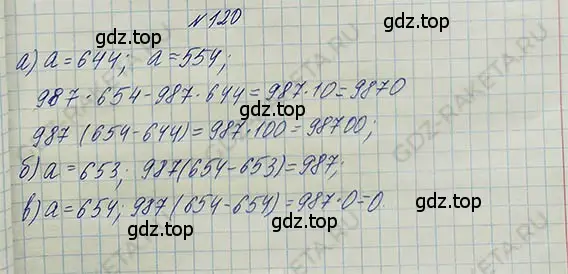 №120
а) a = 644; a = 554;
987 · 654 - 987 · 644 = 987 · 10 = 9870
987 (654 - 644) = 987 · 100 = 98700;
б) a = 653; 987 (654 - 653) = 987;
в) a = 654; 987 (654 - 654) = 987 · 0 = 0.
gdz.top
gdz.top
gdz.top
gdz.top
gdz.top
gdz.top
gdz.top
GDZ-RAKETA.RU